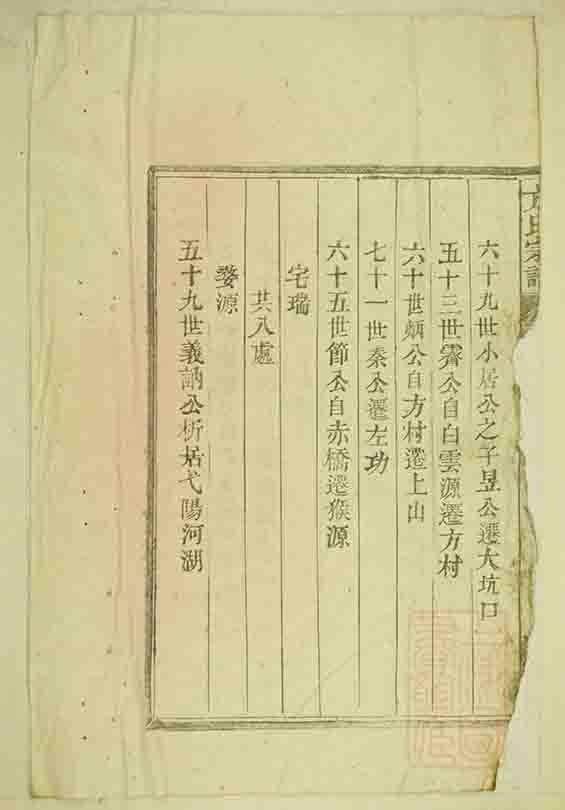 方氏宗譜
六十九世小居公之子昱公遷大坑口
五十三世霽公自白雲源遷方村
六十世公自方村遷上山
七十一世秦公遷左功
六十五世節公自赤橋遷猴源
宅瑞
共八處
婺源
五十九世義訥公析居弋陽河湖